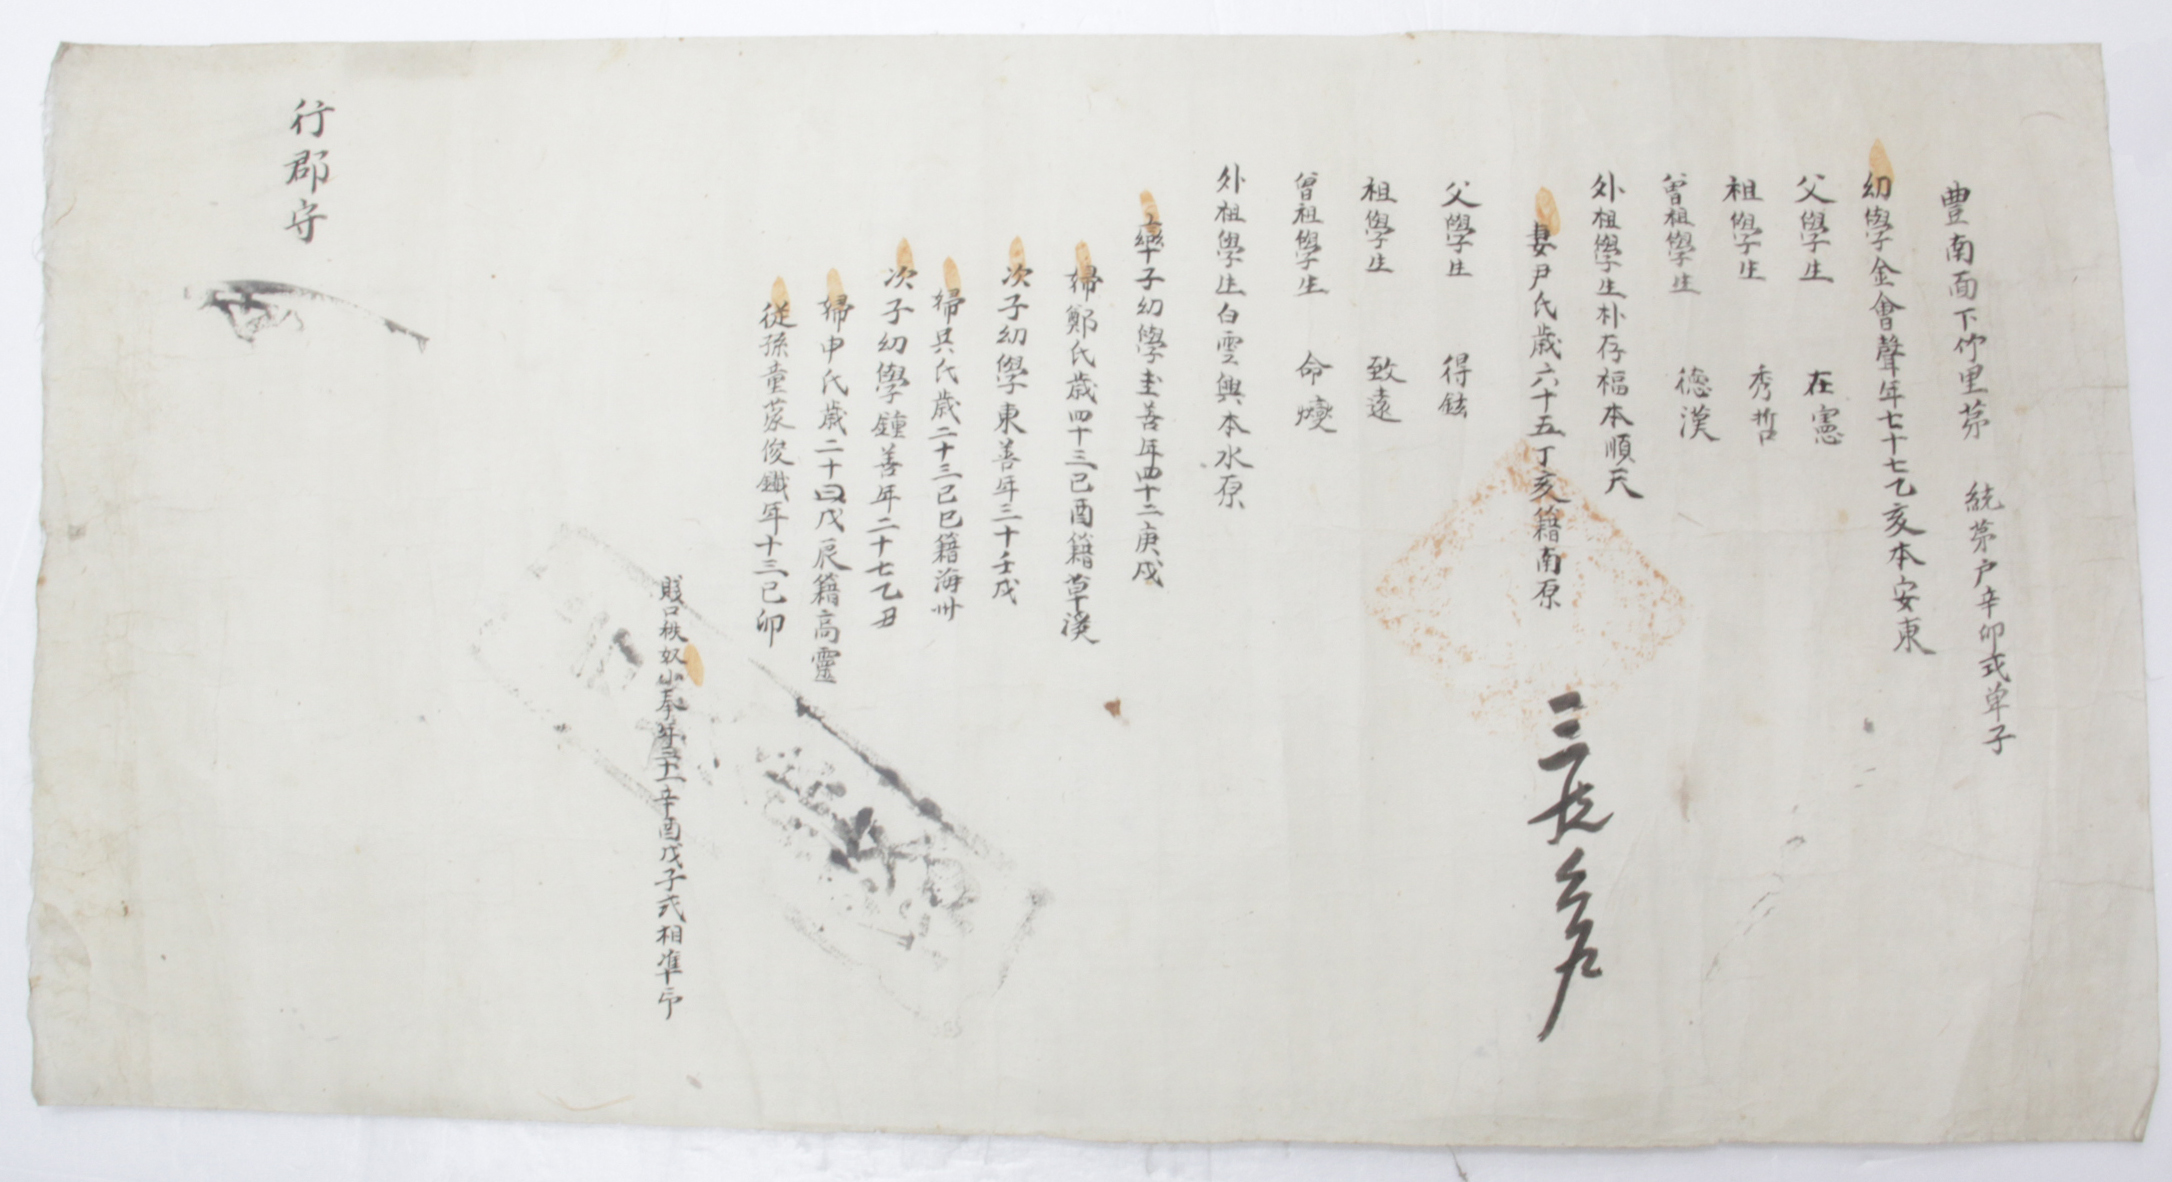 豊南面下竹里苐 統苐户辛卯式单子
幼學金會聲年七十七乙亥本安東
父學生 在憲
祖學生 秀哲
曾祖學生 德漢
外祖學生朴存福本順天
妻尹氏歲六十五丁亥籍南原
父學生 得鉉
祖學生 致遠
曾祖學生 命燮
外祖學生白雲興本水原
率子幼學圭善年四十二庚戌
婦鄭氏歲四十三己酉籍草溪
次子幼學東善年三十壬戌
婦吳氏歲二十三己巳籍海州
次子幼學鍾善年二十七乙丑
婦申氏歲二十四戊辰籍高靈
從孫童蒙俊鐵年十三己卯
賤口秩奴小奉年三十一辛酉戊子式相準印
行郡守
三長